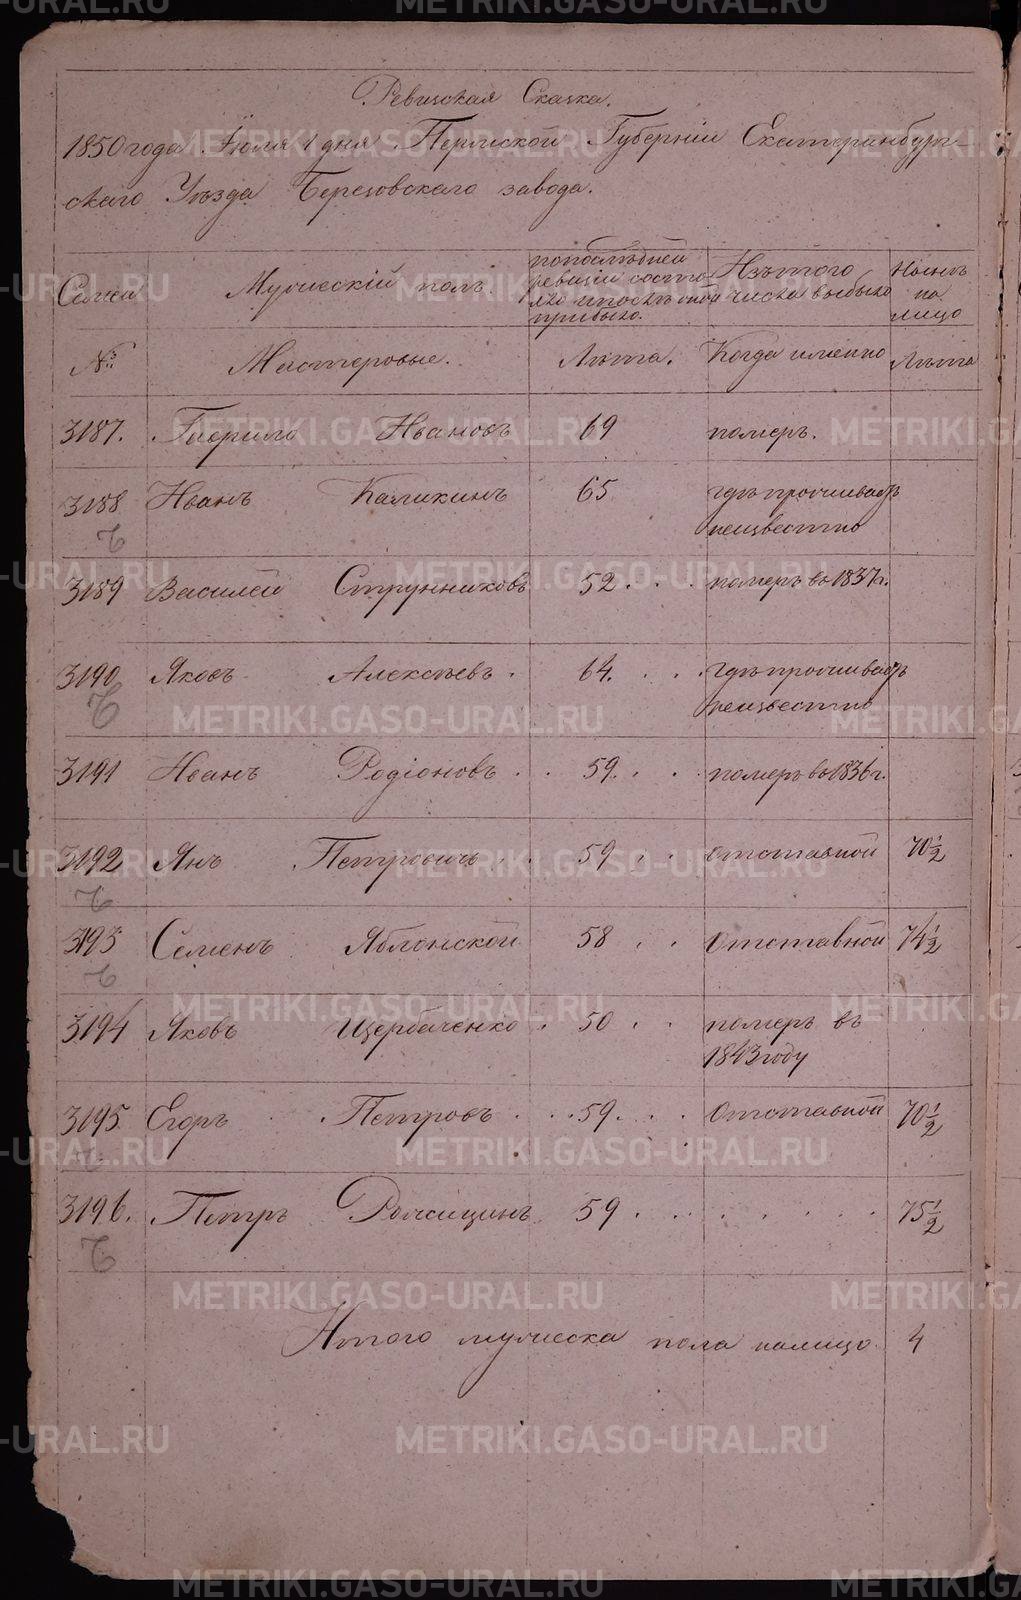 Ревизская Сказка.
1850 года Июля 1 дня Пермской Губернии Екатеринбург-
скаго Уѣзда Березовскаго завода.
Семьи Мужескій полъ попослѣдней ревизіи состояло и послѣ оной прибыло. Изътого числа выбыло Нынѣ на лицо
№ Мастеровые. Лѣта. Когда именно Лѣта
3187. Гаврило Ивановъ 69 померъ.
3188 Иванъ Каликинъ 65 гдѣ проживаетъ
неизвестно
3189 Василей Струнниковъ 52 . . . померъ въ 1837 г.
3190 Яковъ Алексѣевъ . 64. . . . гдѣ проживаетъ
неизвестно
3191 Иванъ Родіоновъ . . 59. . . померъ въ 1836 г.
3192 Янъ Петровичъ . . 59 . . отставной 70 1/2
3193 Семенъ Яблонской 58 . . отставной 74 1/2
3194 Яковъ Щербаченко . 50 . . померъ въ
1843 году
3195. Егоръ . . Петровъ . . . 59. . . Отставной 70 1/2
3196. Петръ 59 . . . . . . . 75 1/2
Итого мужеска пола налицо 4
METRIKI.GASO-URAL.RU